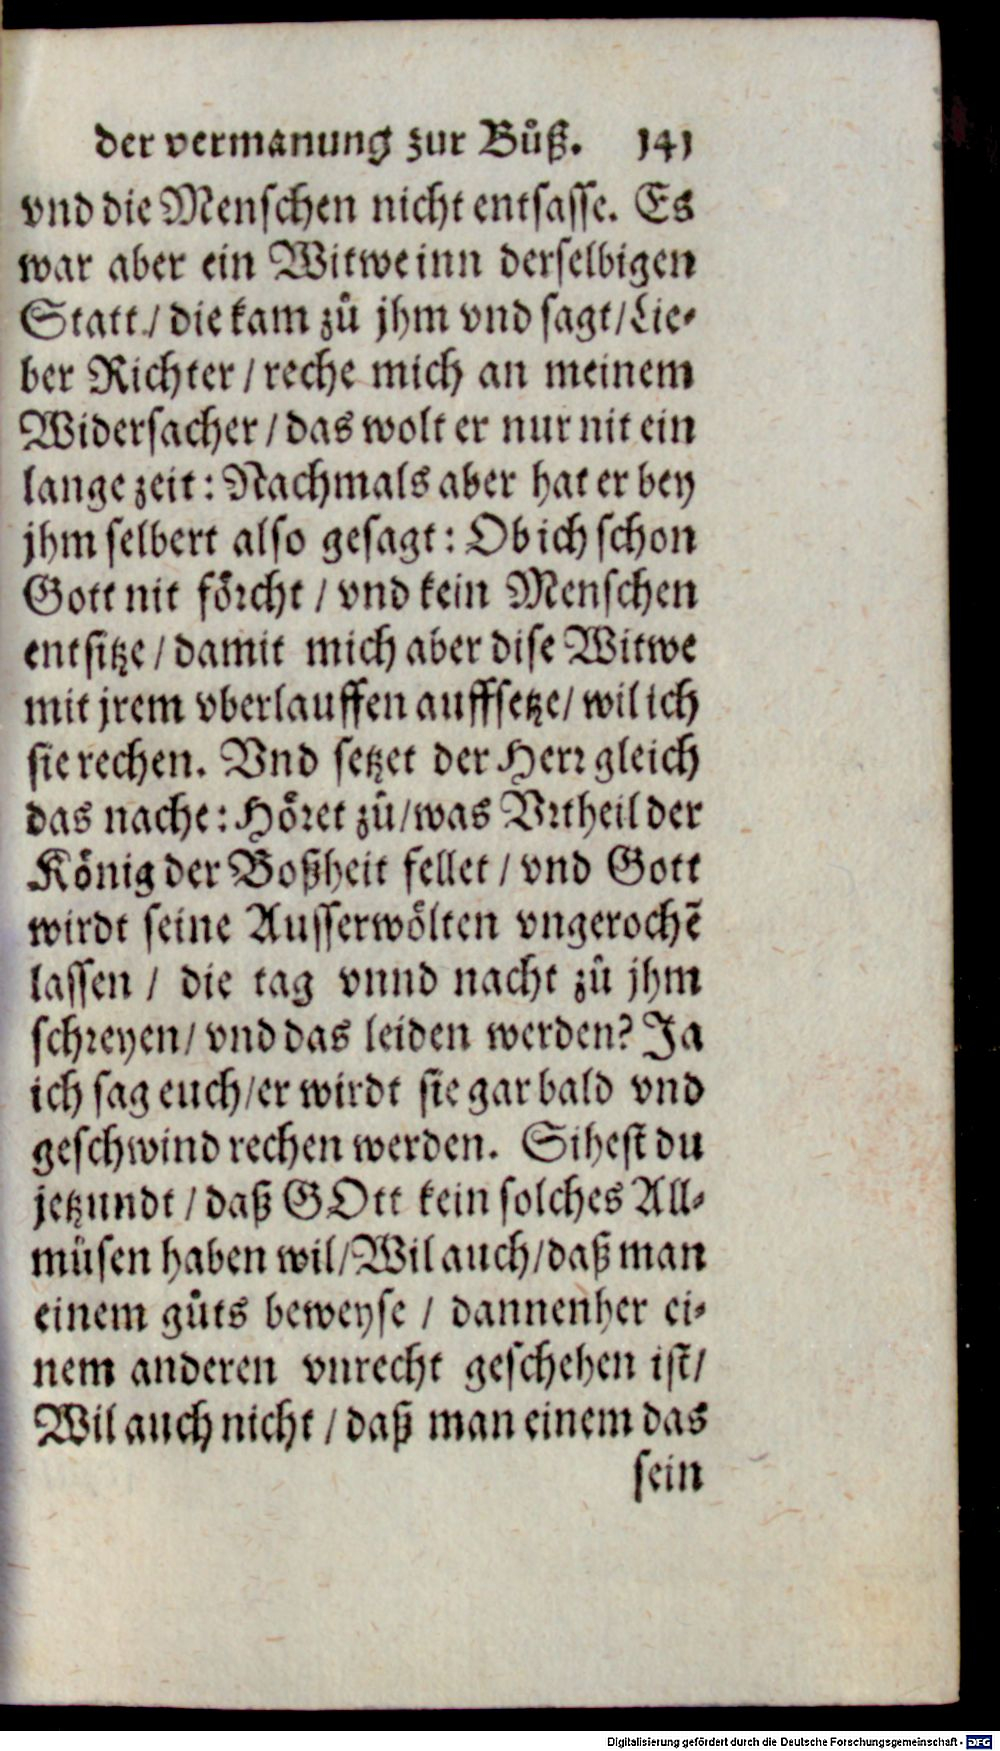 der vermanung zur Bůß. 141
vnd die Menschen nicht entsasse. Es
war aber ein Witwe inn derselbigen
Statt / die kam zů jhm vnd sagt / Lie-
ber Richter / reche mich an meinem
Widersacher / das wolt er nur nit ein
lange zeit: Nachmals aber hat er bey
jhm selbert also gesagt: Ob ich schon
Gott nit föꝛcht / vnd kein Menschen
entsitze / damit mich aber dise Witwe
mit jrem vberlauffen auffsetze / wil ich
sie rechen. Vnd setzet der Herꝛ gleich
das nache: Höꝛet zů / was Vꝛtheil der
König der Boßheit fellet / vnd Gott
wirdt seine Ausserwölten vngerochē
lassen / die tag vnnd nacht zů jhm
schꝛeyen / vnd das leiden werden? Ja
ich sag euch / er wirdt sie gar bald vnd
geschwind rechen werden. Sihest du
jetzundt / daß GOtt kein solches All-
můsen haben wil / Wil auch / daß man
einem gůts beweyse / dannenher ei-
nem anderen vnrecht geschehen ist /
Wil auch nicht / daß man einem das
sein
Digitalisierung gefördert durch die Deutsche Forschungsgemeinschaft - DFG